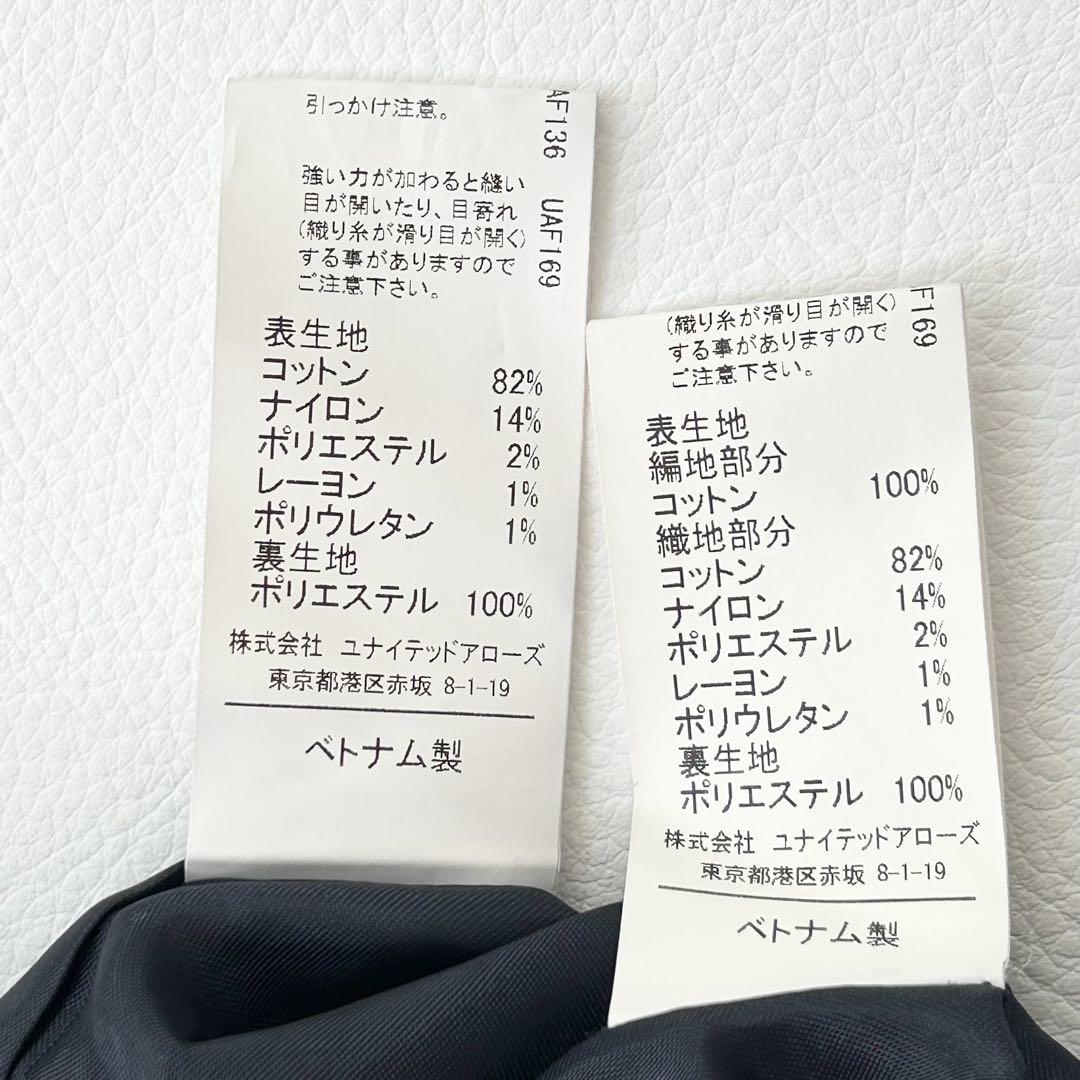 引っかけ注意。
強い力が加わると縫い
目が開いたり、目寄れ
(織り糸が滑り目が開く)
する事がありますので
ご注意下さい。
表生地
コットン 82%
ナイロン 14%
ポリエステル 2%
レーヨン 1%
ポリウレタン 1%
裏生地
ポリエステル 100%
株式会社 ユナイテッドアローズ
東京都港区赤坂 8-1-19
ベトナム製
AF136 UAF169
(織り糸が滑り目が開く)
する事がありますので
ご注意下さい。
表生地
編地部分
コットン 100%
織地部分
コットン 82%
ナイロン 14%
ポリエステル 2%
レーヨン 1%
ポリウレタン 1%
裏生地
ポリエステル 100%
株式会社 ユナイテッドアローズ
東京都港区赤坂 8-1-19
ベトナム製
F169